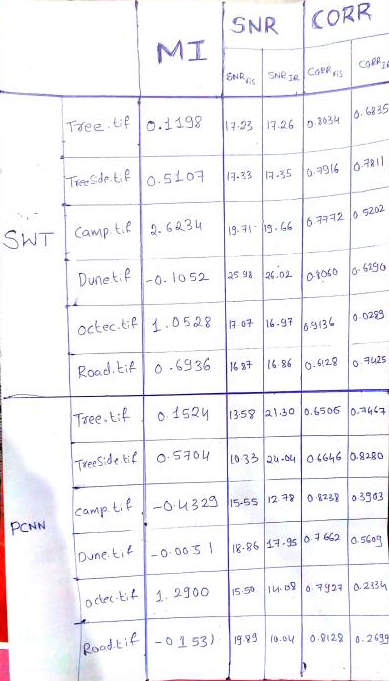 MI SNR CORR
SNR vis SNR IR CORR vis CORR IR
SWT
Tree.tif 0.1198 17.23 17.26 0.8034 0.6835
TreeSide.tif 0.5107 17.33 17.35 0.7916 0.7811
Camp.tif 2.6234 19.71 19.66 0.7772 0.5202
Dune.tif -0.1052 25.98 26.02 0.8060 0.6290
octec.tif 1.0528 17.07 16.97 0.9136 0.0289
Road.tif 0.6936 16.87 16.86 0.6128 0.7425
PCNN
Tree.tif 0.1524 13.58 21.30 0.6506 0.7467
TreeSide.tif 0.5704 10.33 24.04 0.6646 0.8280
Camp.tif -0.4329 15.55 12.78 0.8238 0.3903
Dune.tif -0.0031 18.86 17.95 0.7662 0.5609
octec.tif 1.2900 15.50 14.08 0.7927 0.2334
Road.tif -0.1531 19.89 10.04 0.8128 0.2699